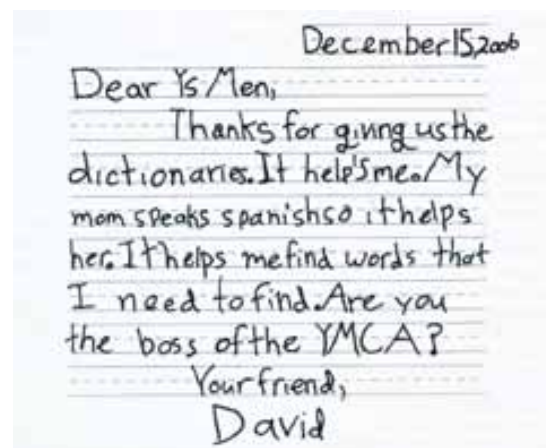 December 15, 2006
Dear Ys Men,
Thanks for giving us the
dictionaries. It help's me. My
mom speaks spanish so it helps
her. It helps me find words that
I need to find. Are you
the boss of the YMCA?
Your friend,
David